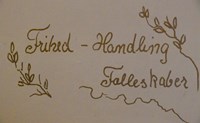 Frihed - Handling
Fælleskaber